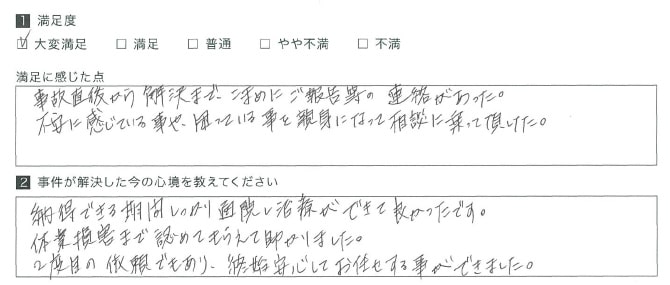 1 満足度
☑ 大変満足 □ 満足 □ 普通 □ やや不満 □ 不満
満足に感じた点
事故直後から解決まで、こまめにご報告等の連絡があった。
不安に感じている事や、困っている事を親身になって相談に乗って頂けた。
2 事件が解決した今の心境を教えてください
納得できる期間しっかり通院し治療ができて良かったです。
休業損害まで認めてもらえて助かりました。
2度目の依頼でもあり、終始安心してお任せする事ができました。